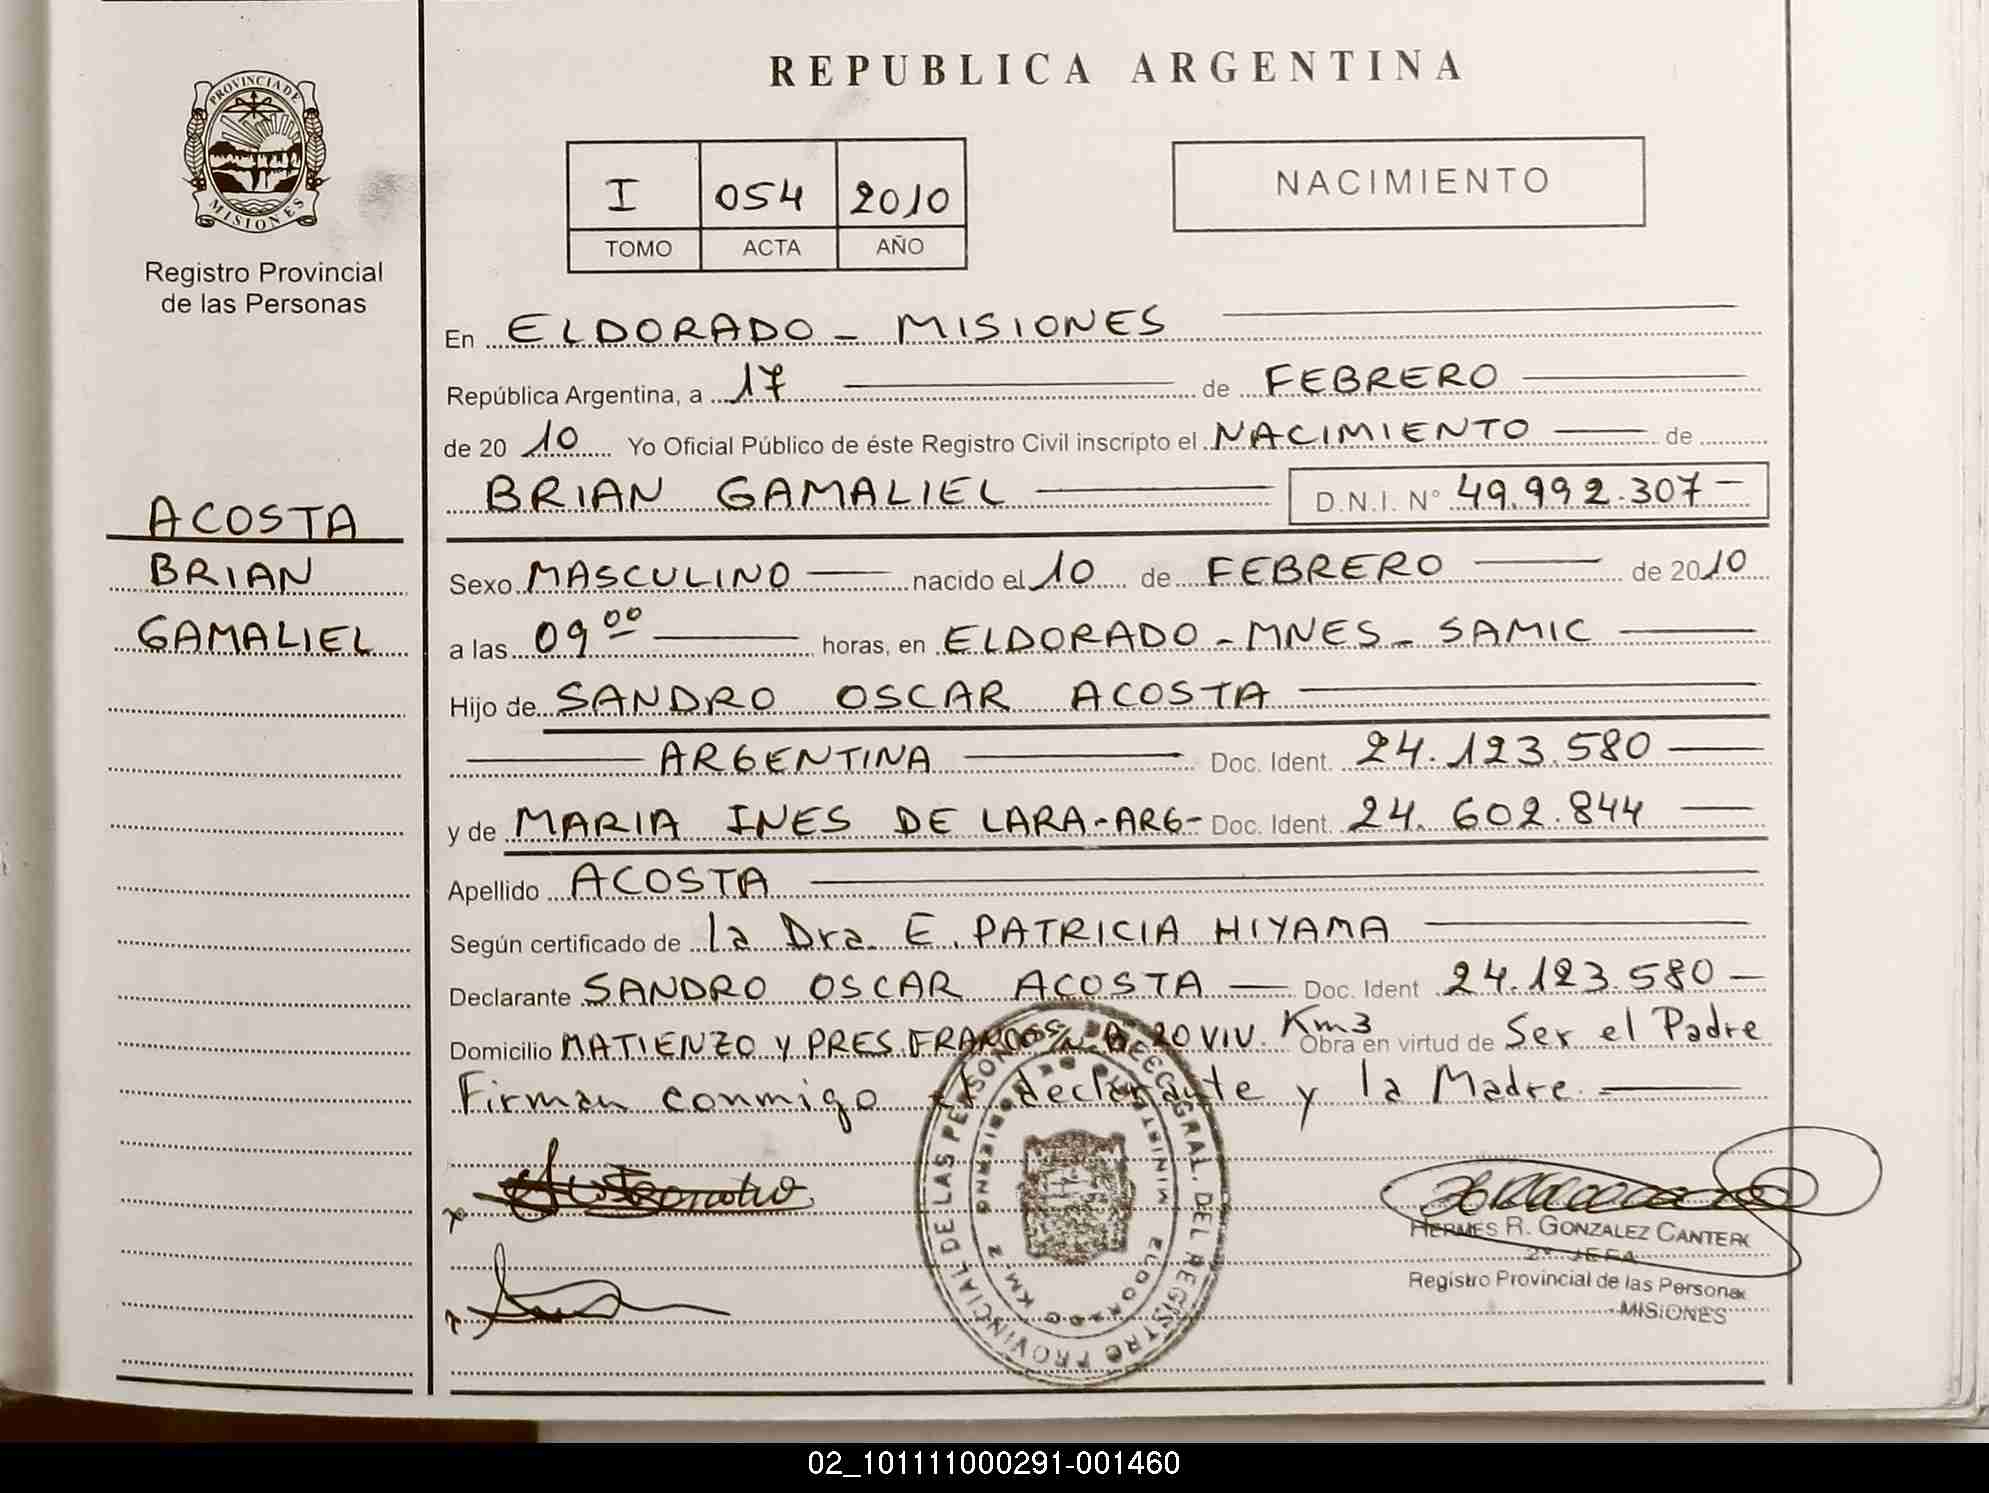 PROVINCIA DE
MISIONES
Registro Provincial
de las Personas
ACOSTA
BRIAN
GAMALIEL
REPUBLICA ARGENTINA
I 054 2010
TOMO ACTA AÑO
NACIMIENTO
En ELDORADO - MISIONES
República Argentina, a 17 de FEBRERO
de 20 10 Yo Oficial Público de éste Registro Civil inscripto el NACIMIENTO de
BRIAN GAMALIEL D.N.I. N° 49.992.307-
Sexo MASCULINO nacido el 10 de FEBRERO de 2010
a las 09 00 horas, en ELDORADO - MNES - SAMIC
Hijo de SANDRO OSCAR ACOSTA
ARGENTINA Doc. Ident. 24.123.580
y de MARIA INES DE LARA-ARG- Doc. Ident. 24.602.844
Apellido ACOSTA
Según certificado de la Dra. E. PATRICIA HIYAMA
Declarante SANDRO OSCAR ACOSTA Doc. Ident 24.123.580
Domicilio MATIENZO Y PRES. FRANCO S/N 20 VIV. Km3 Obra en virtud de Ser el Padre
Firman conmigo el declarante y la Madre.
DIREC. GRAL. DEL REGISTRO PROVINCIAL DE LAS PERSONAS
ELDORADO KM 2
HERMES R. GONZALEZ CANTER
2° JEFA
Registro Provincial de las Persona
MISIONES
02_101111000291-001460